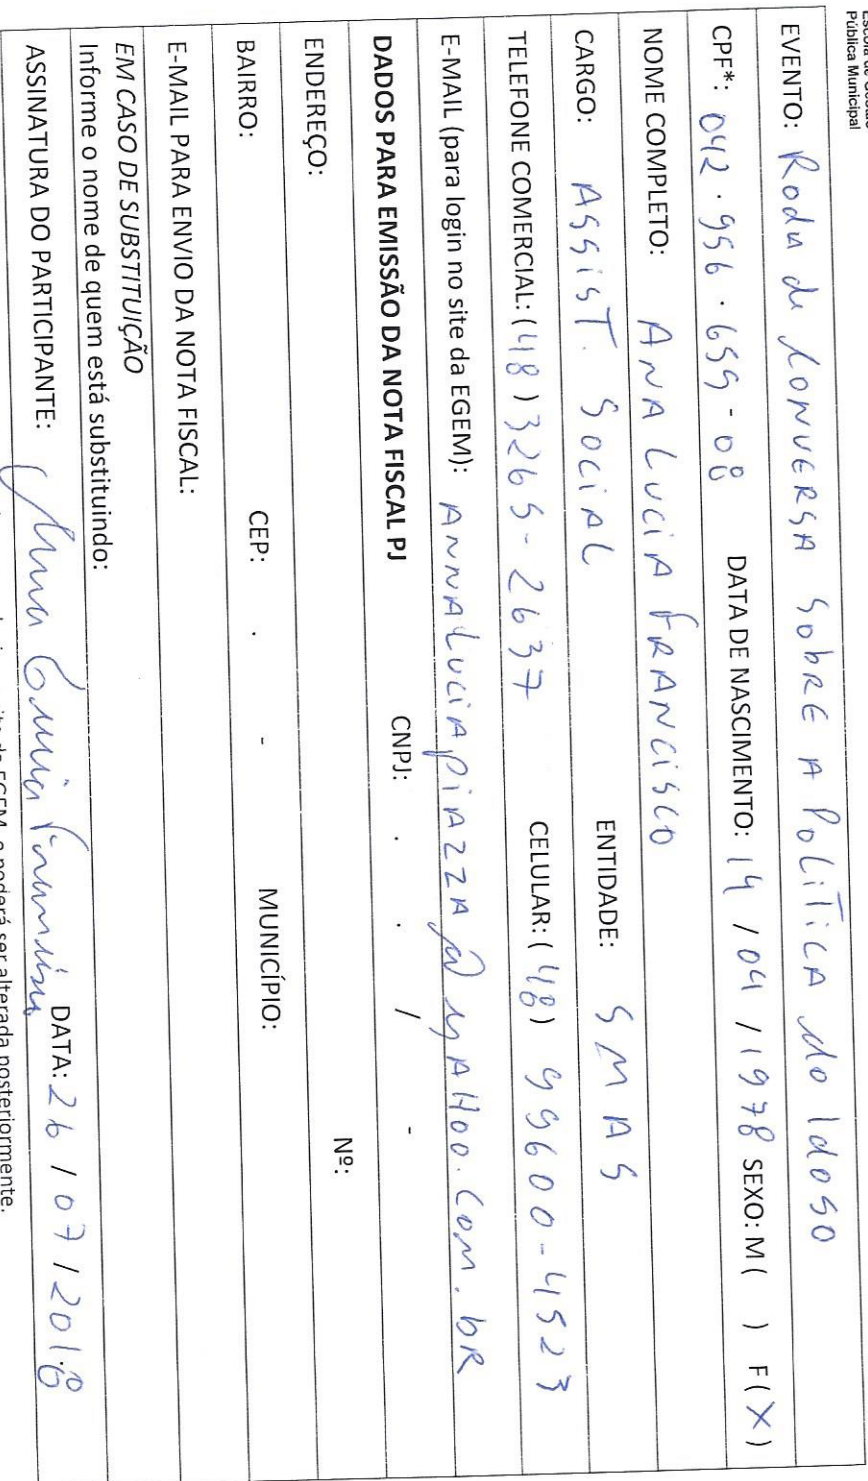 Pública Municipal
EVENTO: Roda de Conversa Sobre A Política do Idoso
CPF*: 042.956.659-08 DATA DE NASCIMENTO: 14/04/1978 SEXO: M( ) F(X)
NOME COMPLETO: ANA LUCIA FRANCISCO
CARGO: ASSIST. SOCIAL ENTIDADE: SMAS
TELEFONE COMERCIAL: (48) 3265-2637 CELULAR: (48) 99600-4523
E-MAIL (para login no site da EGEM): ANNALUCIAPIAZZA@YAHOO.COM.BR
DADOS PARA EMISSÃO DA NOTA FISCAL PJ CNPJ: . . / -
ENDEREÇO: Nº:
BAIRRO: CEP: . - MUNICÍPIO:
E-MAIL PARA ENVIO DA NOTA FISCAL:
EM CASO DE SUBSTITUIÇÃO
Informe o nome de quem está substituindo:
ASSINATURA DO PARTICIPANTE: Ana Lucia Francisco DATA: 26/07/2018
site da EGEM, e poderá ser alterada posteriormente.